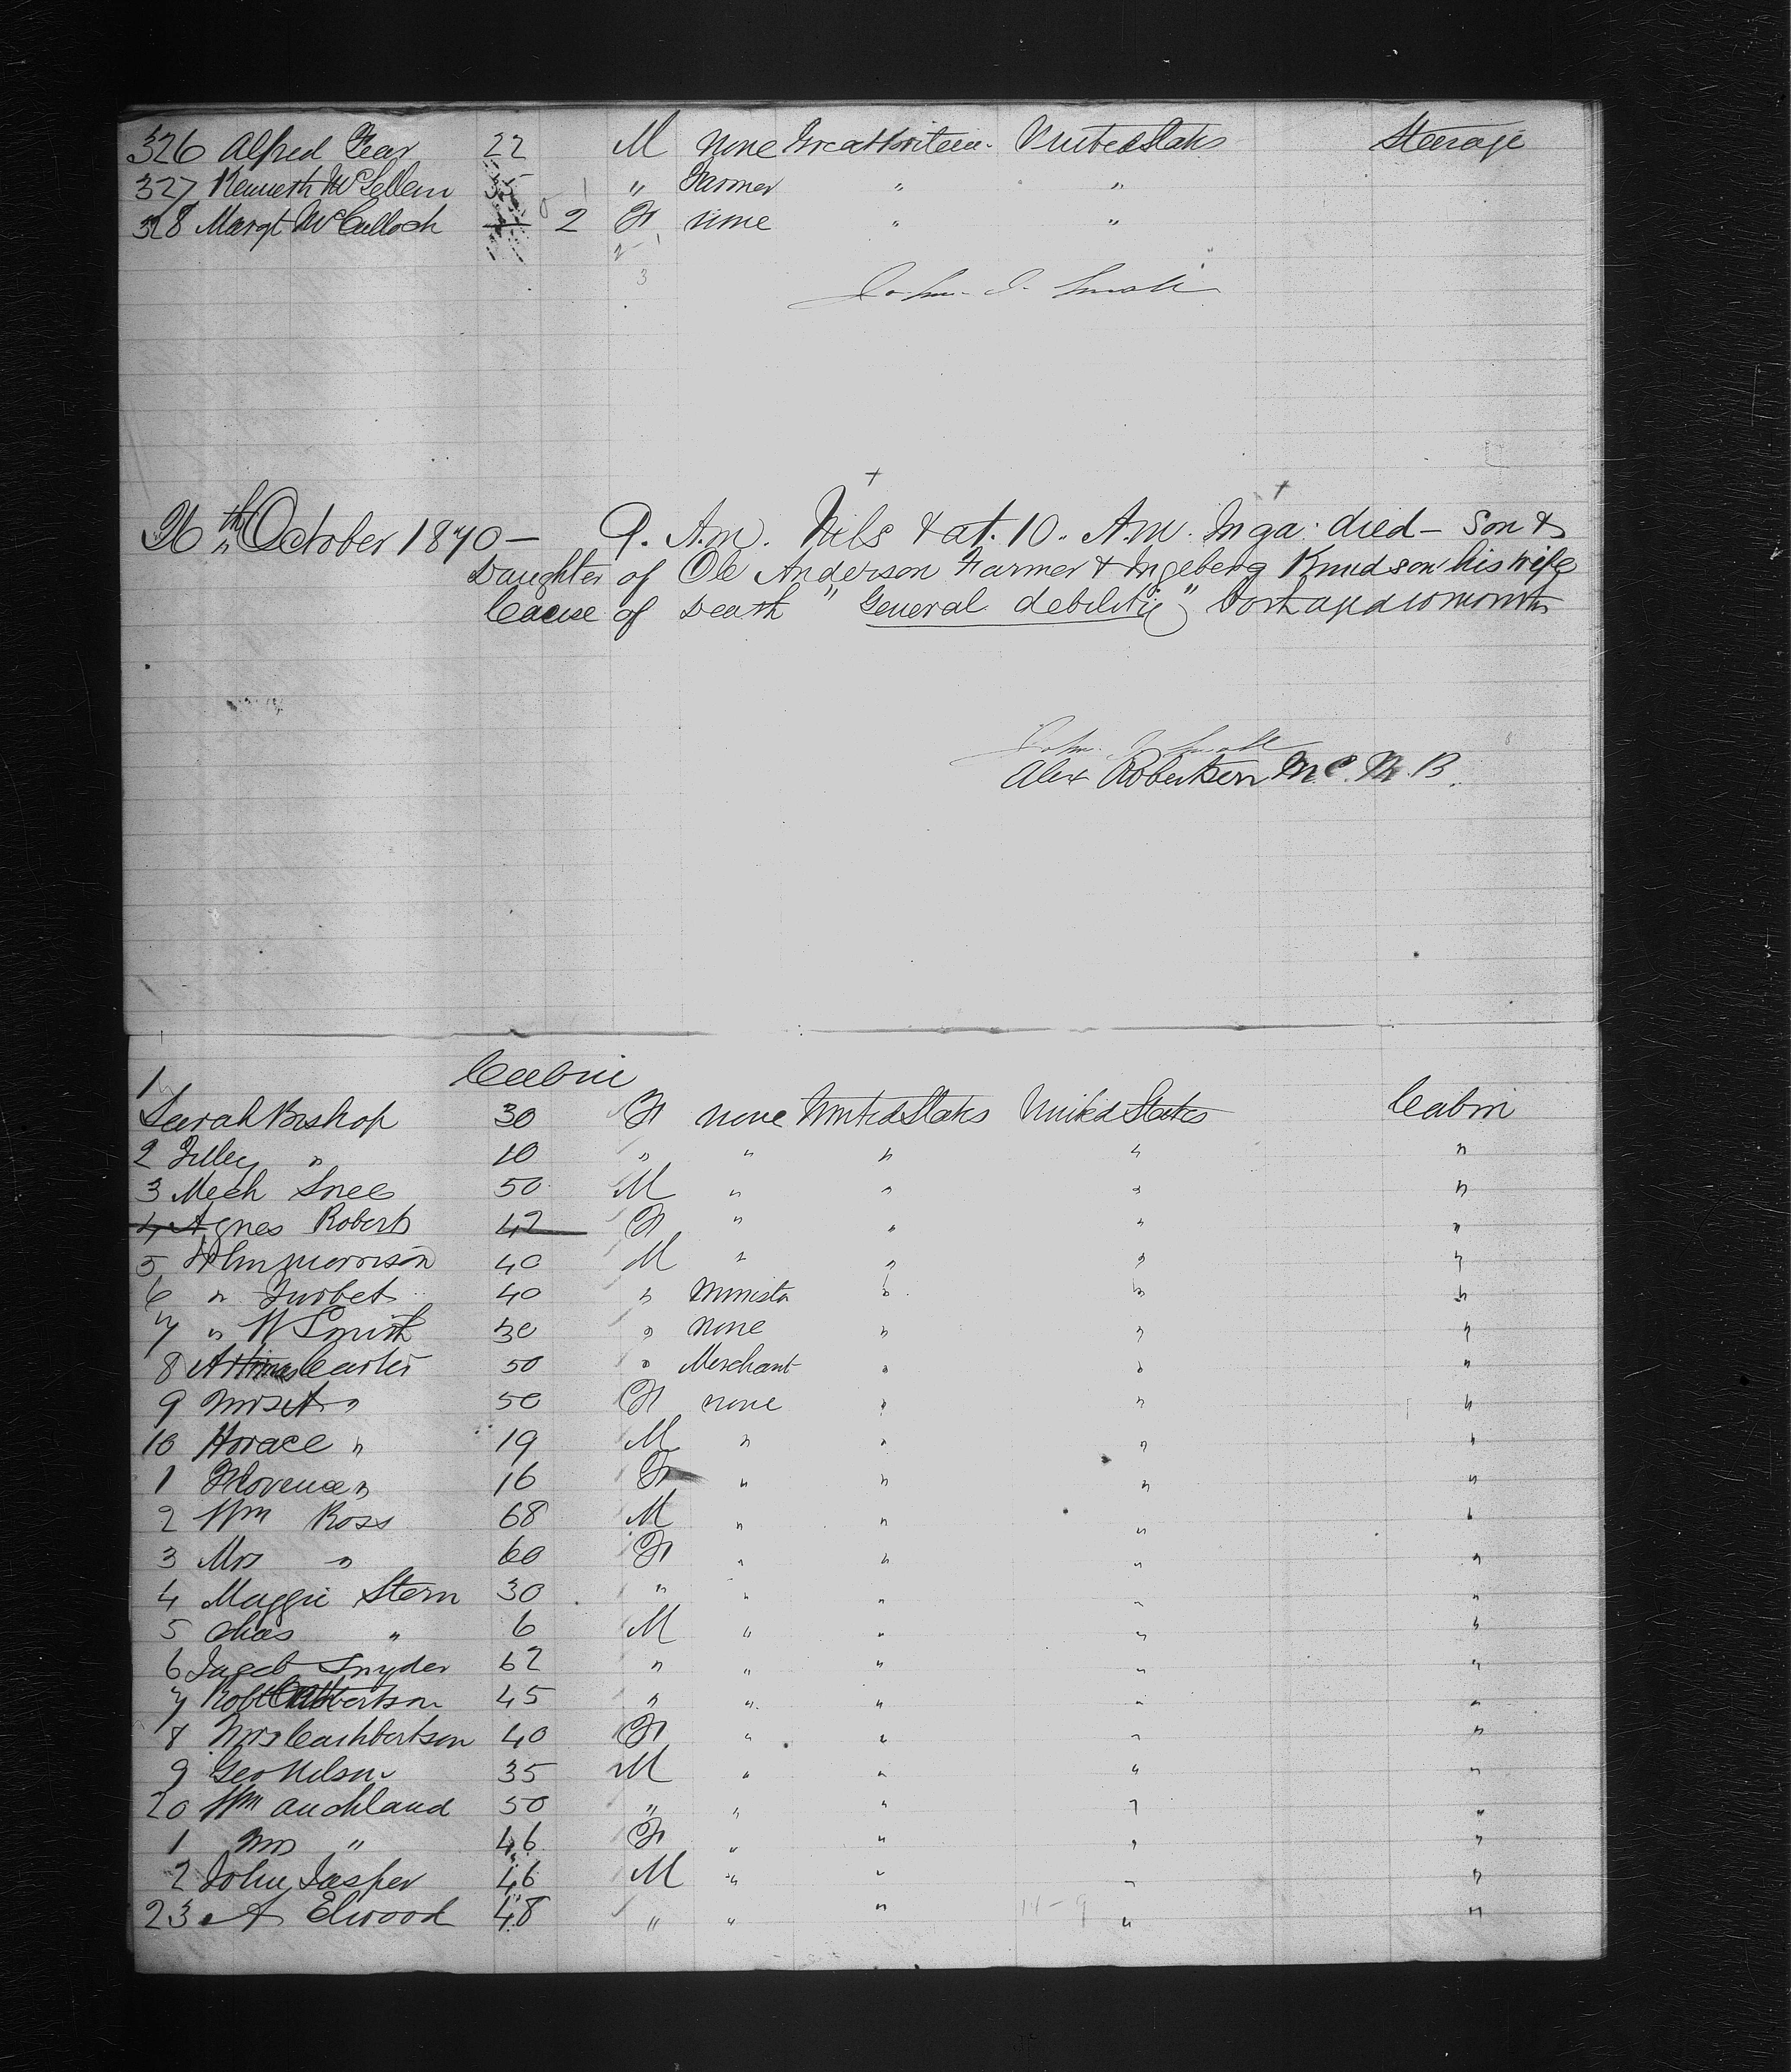 326 Alfred Gear 22 M None Great Britain United States Steerage
327 Kenneth McLellan 35 1 " Farmer " "
328 Margt McCulloch 2 F none " "
2 1
3
John
26th October 1870 — 9. A.M. Nils & at. 10. A.M. Inga. died — Son &
Daughter of Ole Anderson Farmer & Ingeberg Knudson his wife
Cause of Death "General debility" both aged 10 months
John
Alex Robertson M.C. M.B.
Cabin
1
Sarah Bishop 30 F none United States United States Cabin
2 Tilley " 10 " " " " "
3 Mech Snee 50 M " " " "
4 Agnes Roberts 42 F " " " "
5 Wm Morrison 40 M " " " "
6 " Turbet 40 " Minister " " "
7 " W Smith 30 " none " " "
8 A Carter 50 " Merchant " " "
9 Mrs A " 50 F none " " "
10 Horace " 19 M " " " "
1 Florence " 16 F " " " "
2 Wm Ross 68 M " " " "
3 Mrs " 60 F " " " "
4 Maggie Stern 30 " " " " "
5 Chas " 6 M " " " "
6 Snyder 62 " " " " "
7 Robt Cuthbertson 45 " " " " "
8 Mrs Cuthbertson 40 F " " " "
9 Geo Nelson 35 M " " " "
20 Wm Auchland 50 " " " " "
1 Mrs " 46 F " " " "
2 John Jasper 46 M " " " "
23 A Elwood 48 " " " 11-9 " "